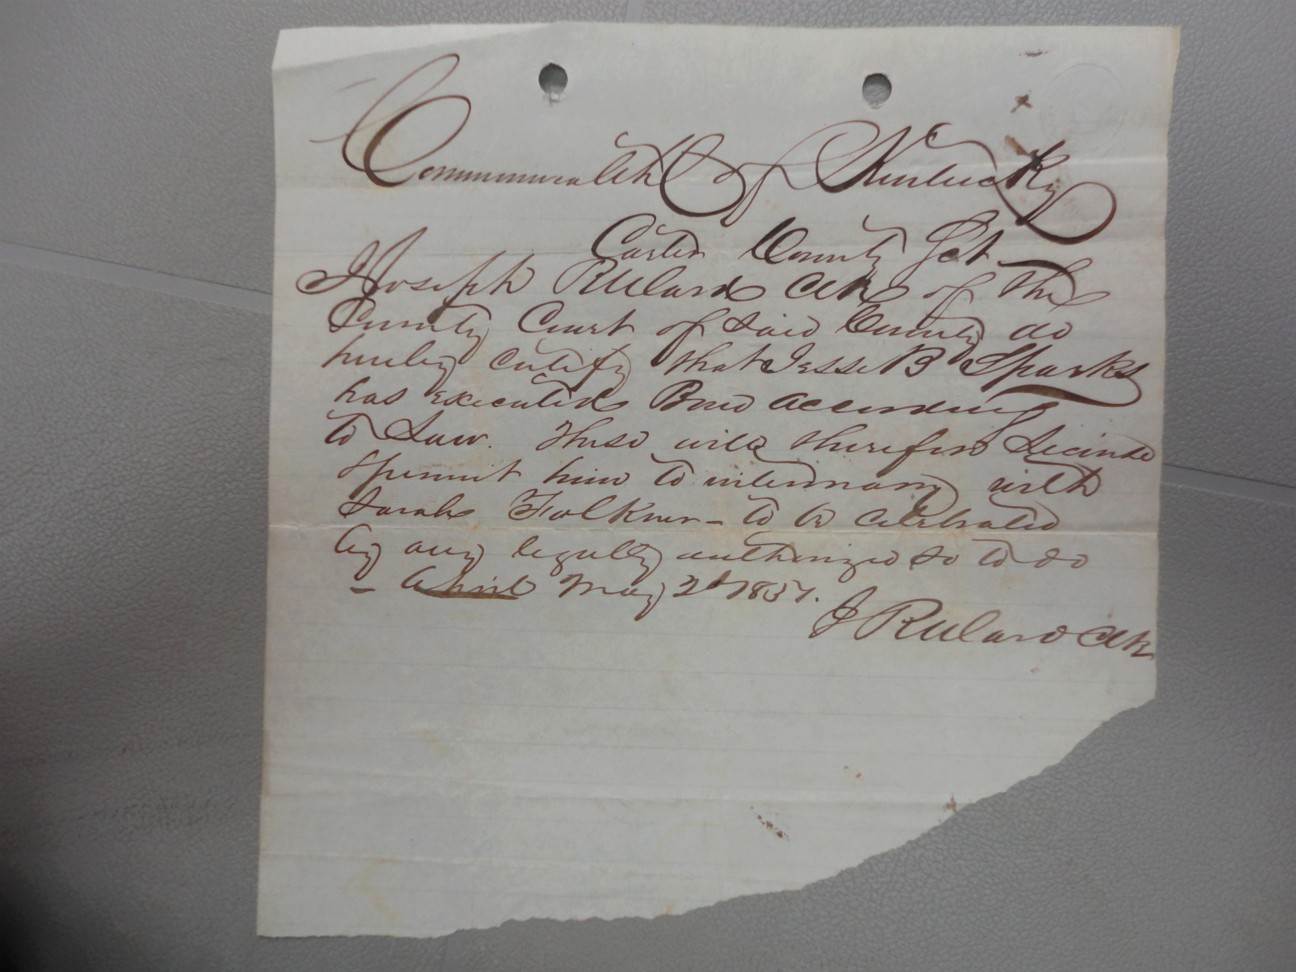 Commonwealth of Kentucky
Carter County Sct
I Joseph Ulard Clk of the
County Court of said County do
hereby certify that Jesse B Sparks
has executed Bond according
to Law. These will therefore license
& permit him to intermarry with
Sarah Folkner - to be celebrated
by any legally authorized so to do
- April May 2d 1857.
J Ulard Clk